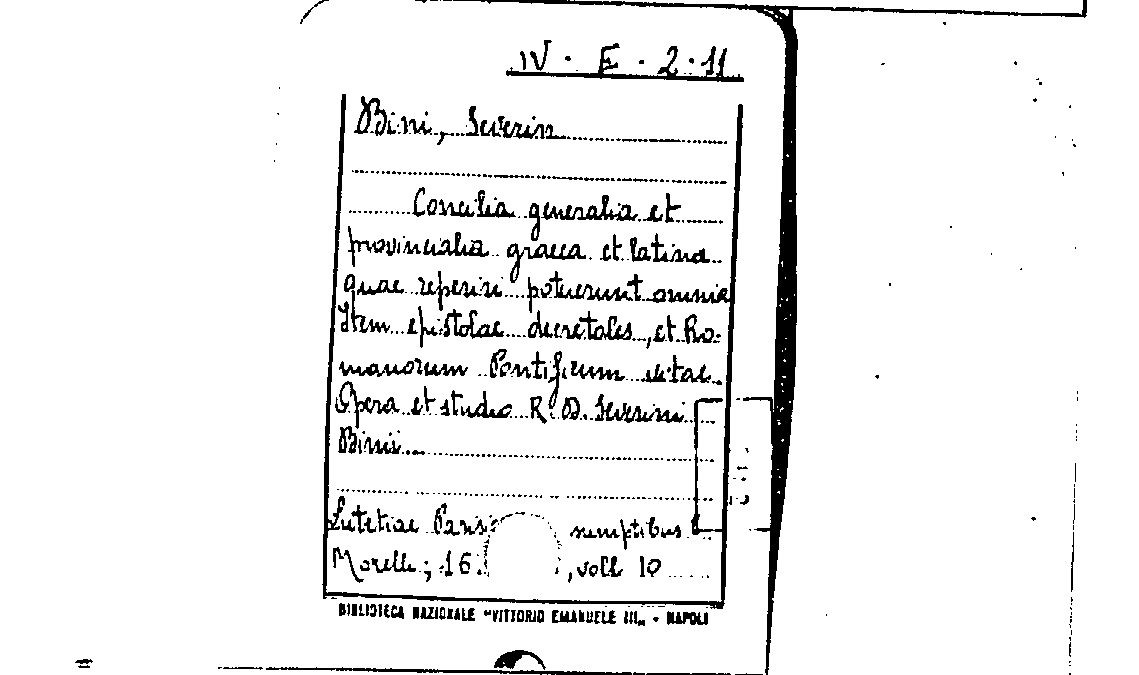 IV · E · 2 · 11
Bini, Severin
Concilia generalia et
provincialia graeca et latina
quae reperiri potuerunt omnia
Item epistolae decretales, et Ro-
manorum Pontificum vitae.
Opera et studio R. D. Severini
Binii...
Lutetiae Paris sumptibus
Morelli; 16. , voll. 10
BIBLIOTECA NAZIONALE "VITTORIO EMANUELE III" - NAPOLI